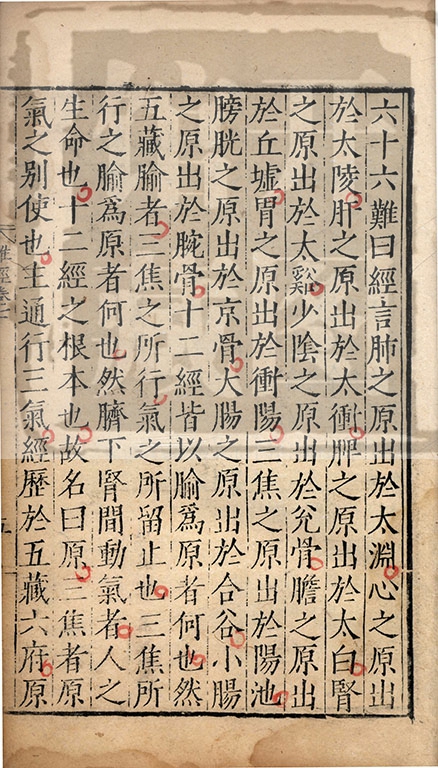 六十六難曰經言肺之原出於太淵心之原出
於太陵肝之原出於太衝脾之原出於太白腎
之原出於太谿少陰之原出於兊骨膽之原出
於丘墟胃之原出於衝陽三焦之原出於陽池
膀胱之原出於京骨大腸之原出於合谷小腸
之原出於腕骨十二經皆以腧爲原者何也然
五藏腧者三焦之所行氣之所留止也三焦所
行之腧爲原者何也然臍下腎間動氣者人之
生命也十二經之根本也故名曰原三焦者原
氣之别使也主通行三氣經歷於五藏六府原
難經卷
五